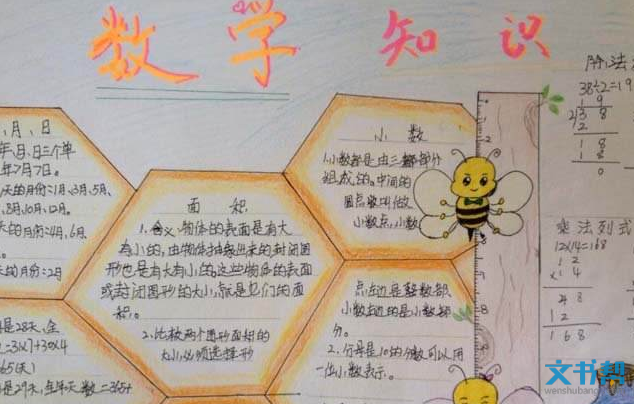 数学知识
月、日
年、月、日三个单
年7月7日。
天的月份:1月、3月、5月、
8月、10月、12月。
天的月份:4月、6月、
天的月份:2月
是28天,全
×7+30×4
365(天)
是29天,全年天数=365+
面积
1、含义:物体的表面是有大
有小的,由物体抽象出来的封闭图
形也是有大有小的,这些物体的表面
或封闭图形的大小,就是它们的面
积。
2、比较两个图形面积的
大小,必须选择形
小数
1.小数都是由三部分
组成的。中间的
圆点叫做
小数点,小数
点左边是整数部
小数右边的是小数部
分。
2、分母是10的分数可以用
一位小数表示。
除法
38÷2=19
19
2 38
2
18
18
0
乘法列式
12×14=168
12
×14
48
12
168
文书帮
wenshubang.com